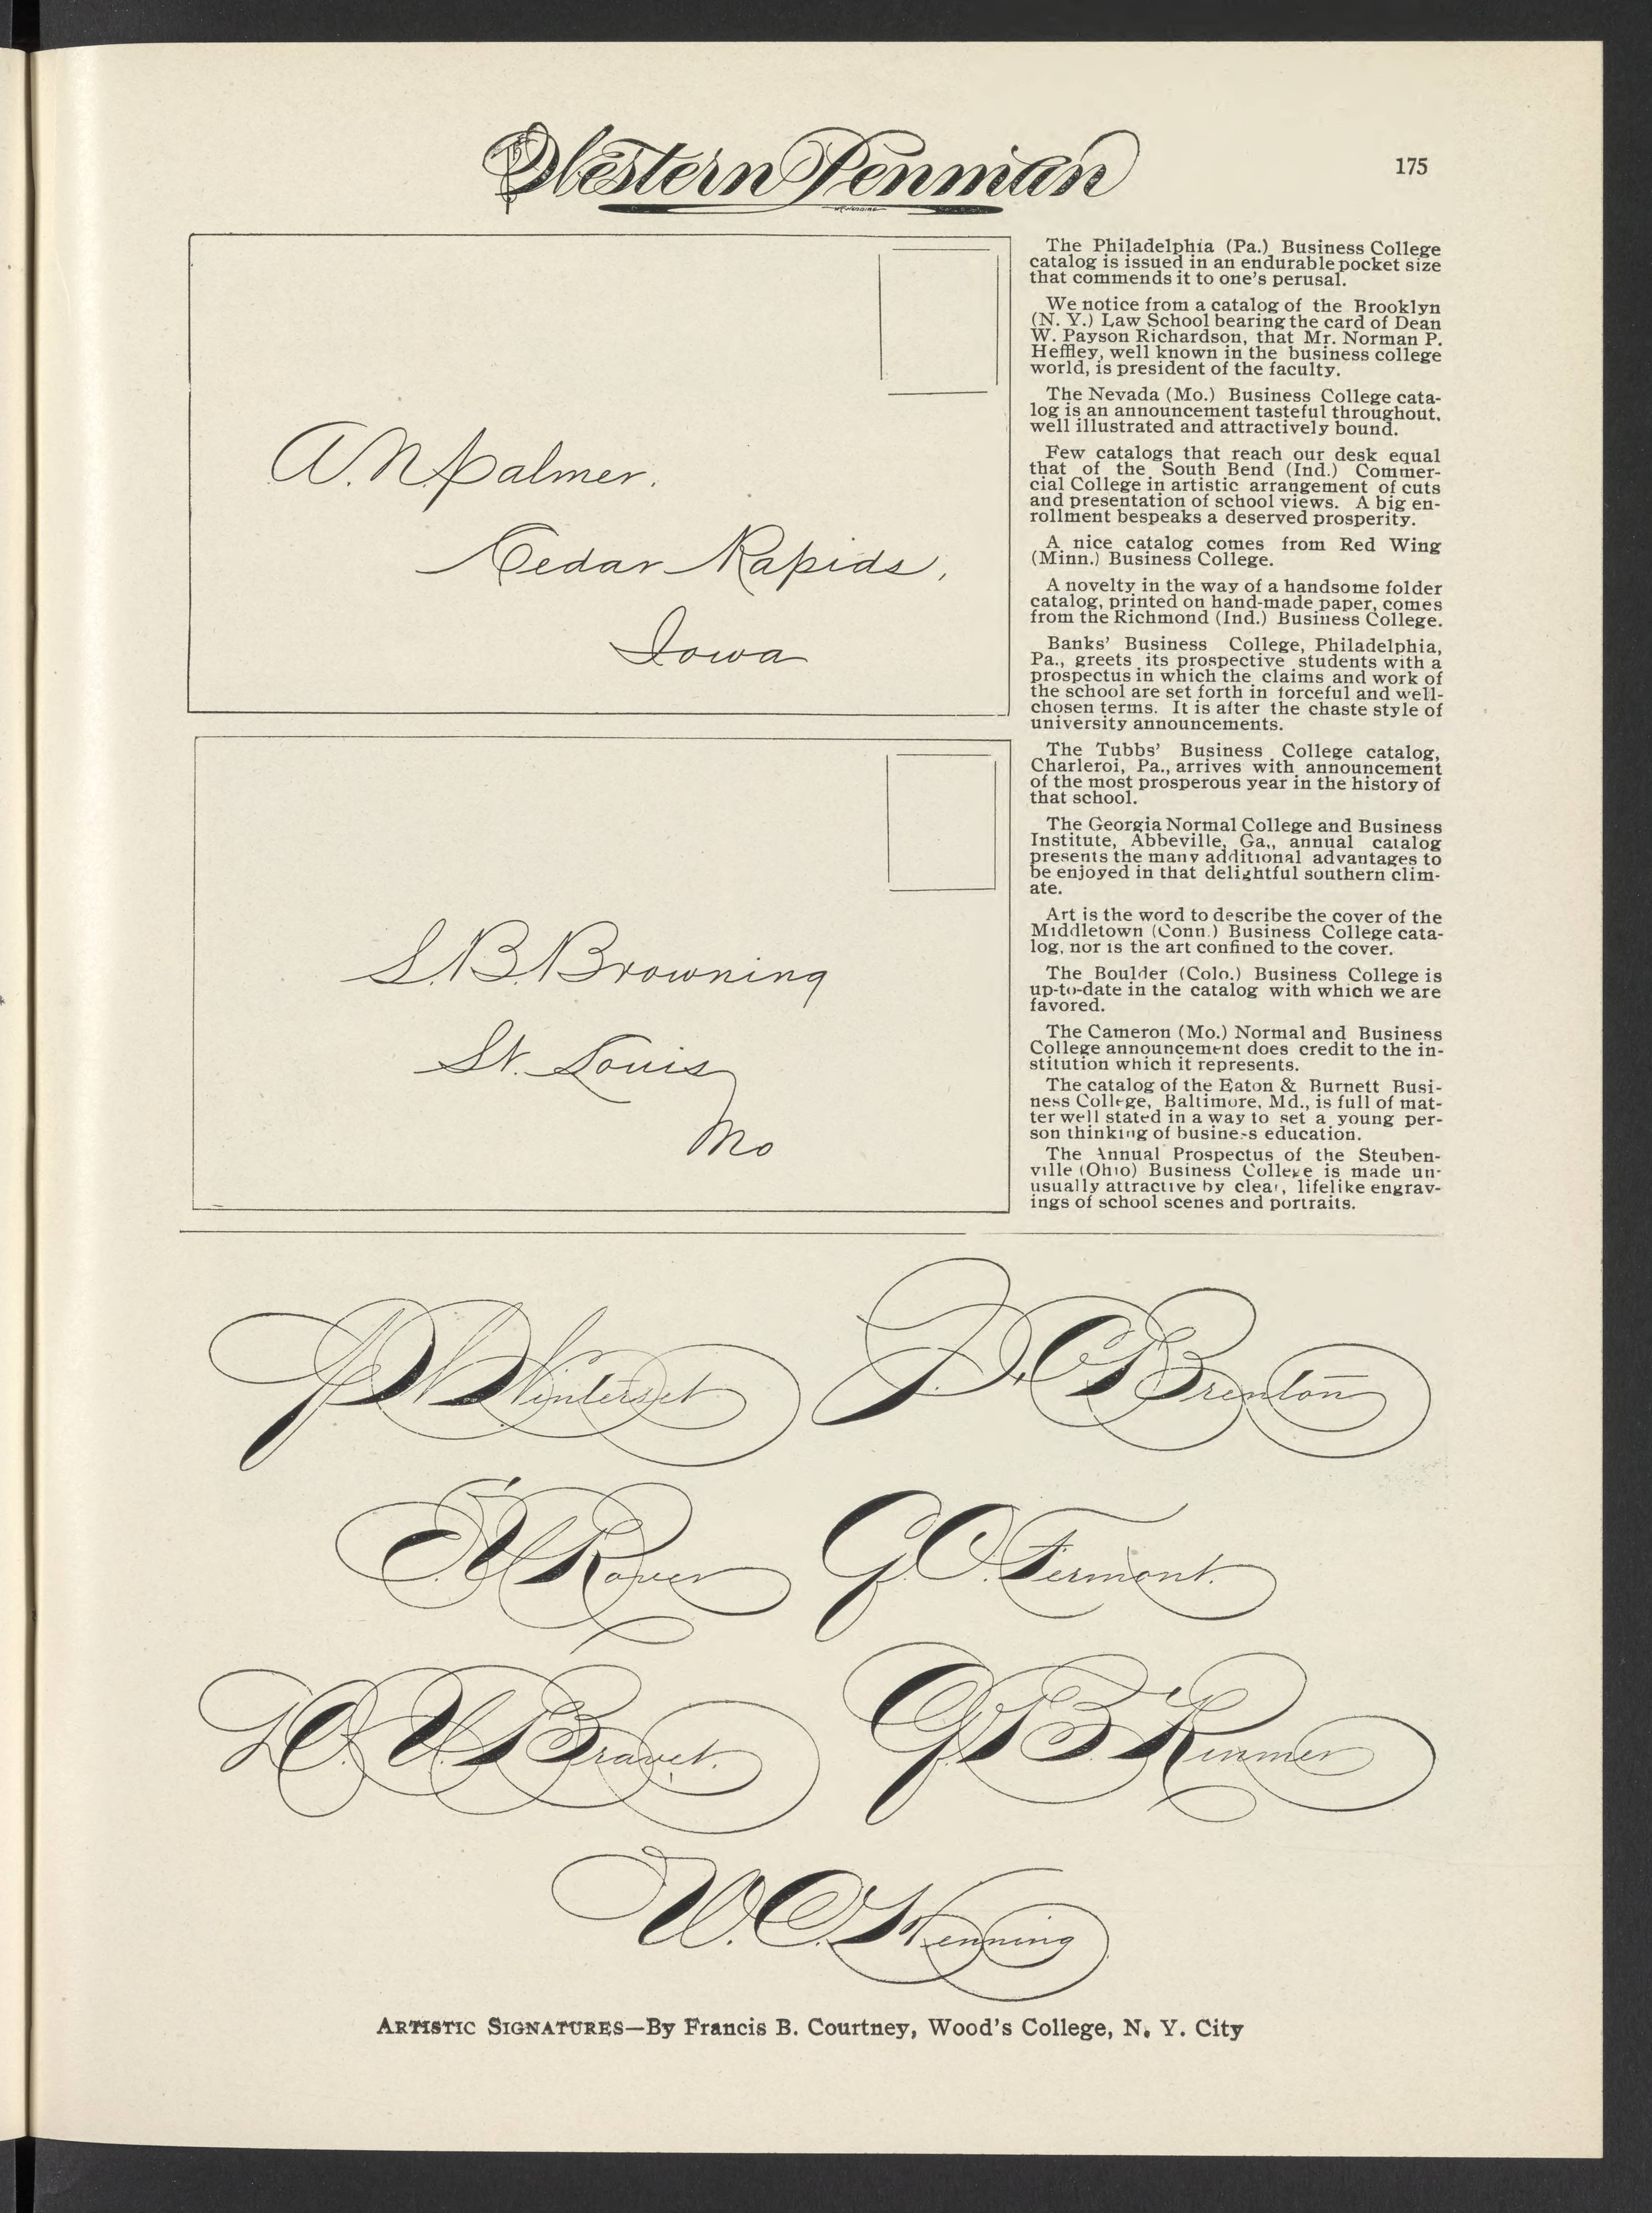 Western Penman
175
A. N. Palmer.
Cedar Rapids,
Iowa
S. B. Browning
St. Louis
Mo
The Philadelphia (Pa.) Business College
catalog is issued in an endurable pocket size
that commends it to one's perusal.
We notice from a catalog of the Brooklyn
(N. Y.) Law School bearing the card of Dean
W. Payson Richardson, that Mr. Norman P.
Heffley, well known in the business college
world, is president of the faculty.
The Nevada (Mo.) Business College cata-
log is an announcement tasteful throughout,
well illustrated and attractively bound.
Few catalogs that reach our desk equal
that of the South Bend (Ind.) Commer-
cial College in artistic arrangement of cuts
and presentation of school views. A big en-
rollment bespeaks a deserved prosperity.
A nice catalog comes from Red Wing
(Minn.) Business College.
A novelty in the way of a handsome folder
catalog, printed on hand-made paper, comes
from the Richmond (Ind.) Business College.
Banks' Business College, Philadelphia,
Pa., greets its prospective students with a
prospectus in which the claims and work of
the school are set forth in forceful and well-
chosen terms. It is after the chaste style of
university announcements.
The Tubbs' Business College catalog,
Charleroi, Pa., arrives with announcement
of the most prosperous year in the history of
that school.
The Georgia Normal College and Business
Institute, Abbeville, Ga,, annual catalog
presents the many additional advantages to
be enjoyed in that delightful southern clim-
ate.
Art is the word to describe the cover of the
Middletown (Conn.) Business College cata-
log, nor is the art confined to the cover.
The Boulder (Colo.) Business College is
up-to-date in the catalog with which we are
favored.
The Cameron (Mo.) Normal and Business
College announcement does credit to the in-
stitution which it represents.
The catalog of the Eaton & Burnett Busi-
ness College, Baltimore, Md., is full of mat-
ter well stated in a way to set a young per-
son thinking of business education.
The Annual Prospectus of the Steuben-
ville (Ohio) Business College is made un-
usually attractive by clear, lifelike engrav-
ings of school scenes and portraits.
Winterset
Brenton
G. O. Fermont.
Bravet.
G. B. Kimmer
W. O. Henning
ARTISTIC SIGNATURES—By Francis B. Courtney, Wood's College, N. Y. City